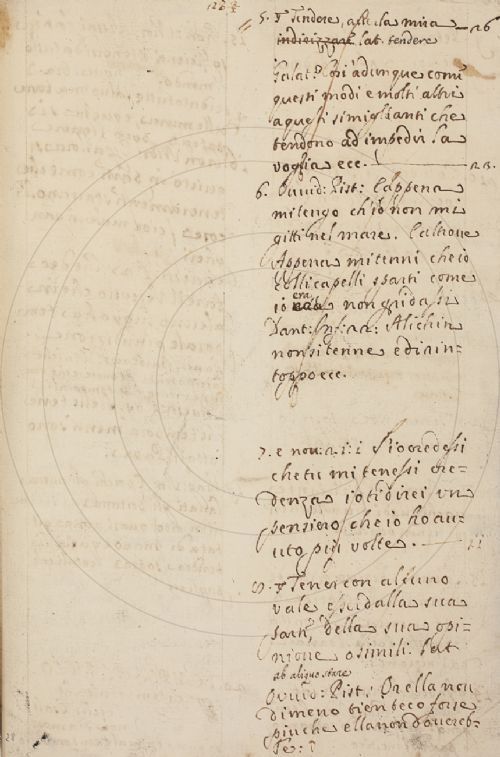 5. Tendere, aver la mira — 26
indirizzare lat. tendere
Galat: Posi adunque come
questi modi e molti altri
a questi simiglianti che
tendono ad impedir la
voglia ecc. — 23.
6. Ovvid: Pist: E appena
mi tengo ch'io non mi
gitti nel mare. E altrove
Appena mi tenni che io
colli capelli sparti come
io era non gridassi
Dant: Inf: 22: Alichin
non si tenne e di rin-
toppo ecc.
7. e nou: 21: 1 S'io credessi
che tu mi tenessi cre-
denza io ti direi un
pensiero che io ho au-
uto più volte. — 11
8. Tener con alcuno
vale esser dalla sua
parte, della sua opi-
nione o simili: Lat
ab aliquo stare
Ovvid: Pist: Or ella non
dimeno tien teco forse
più che ella non dovereb-
be: